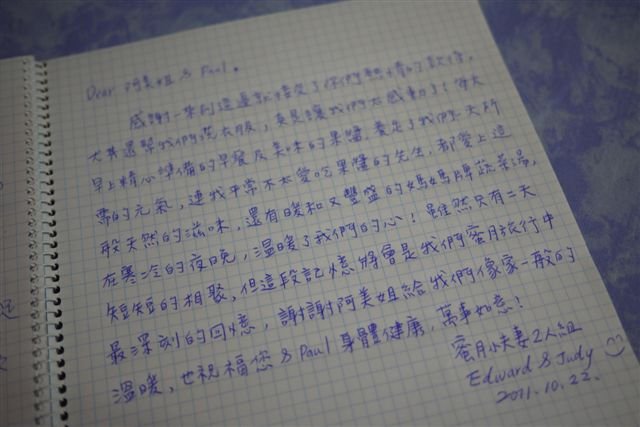 Dear 阿美姐 & Paul。
感謝一來到這邊就接受了你們熱情的款待,
大哥還幫我們洗衣服,真是讓我們太感動了!每天
早上精心準備的早餐及美味的果醬,養足了我們一天所
需的元氣,連我平常不太愛吃果醬的先生,都愛上這
般天然的滋味,還有暖和又豐盛的媽媽牌蔬菜湯,
在寒冷的夜晚,溫暖了我們的心!雖然只有二天
短短的相聚,但這段記憶將會是我們蜜月旅行中
最深刻的回憶,謝謝阿美姐給我們像家一般的
溫暖,也祝福您 & Paul 身體健康,萬事如意!
蜜月小夫妻2人組
Edward & Judy
2011.10.22.